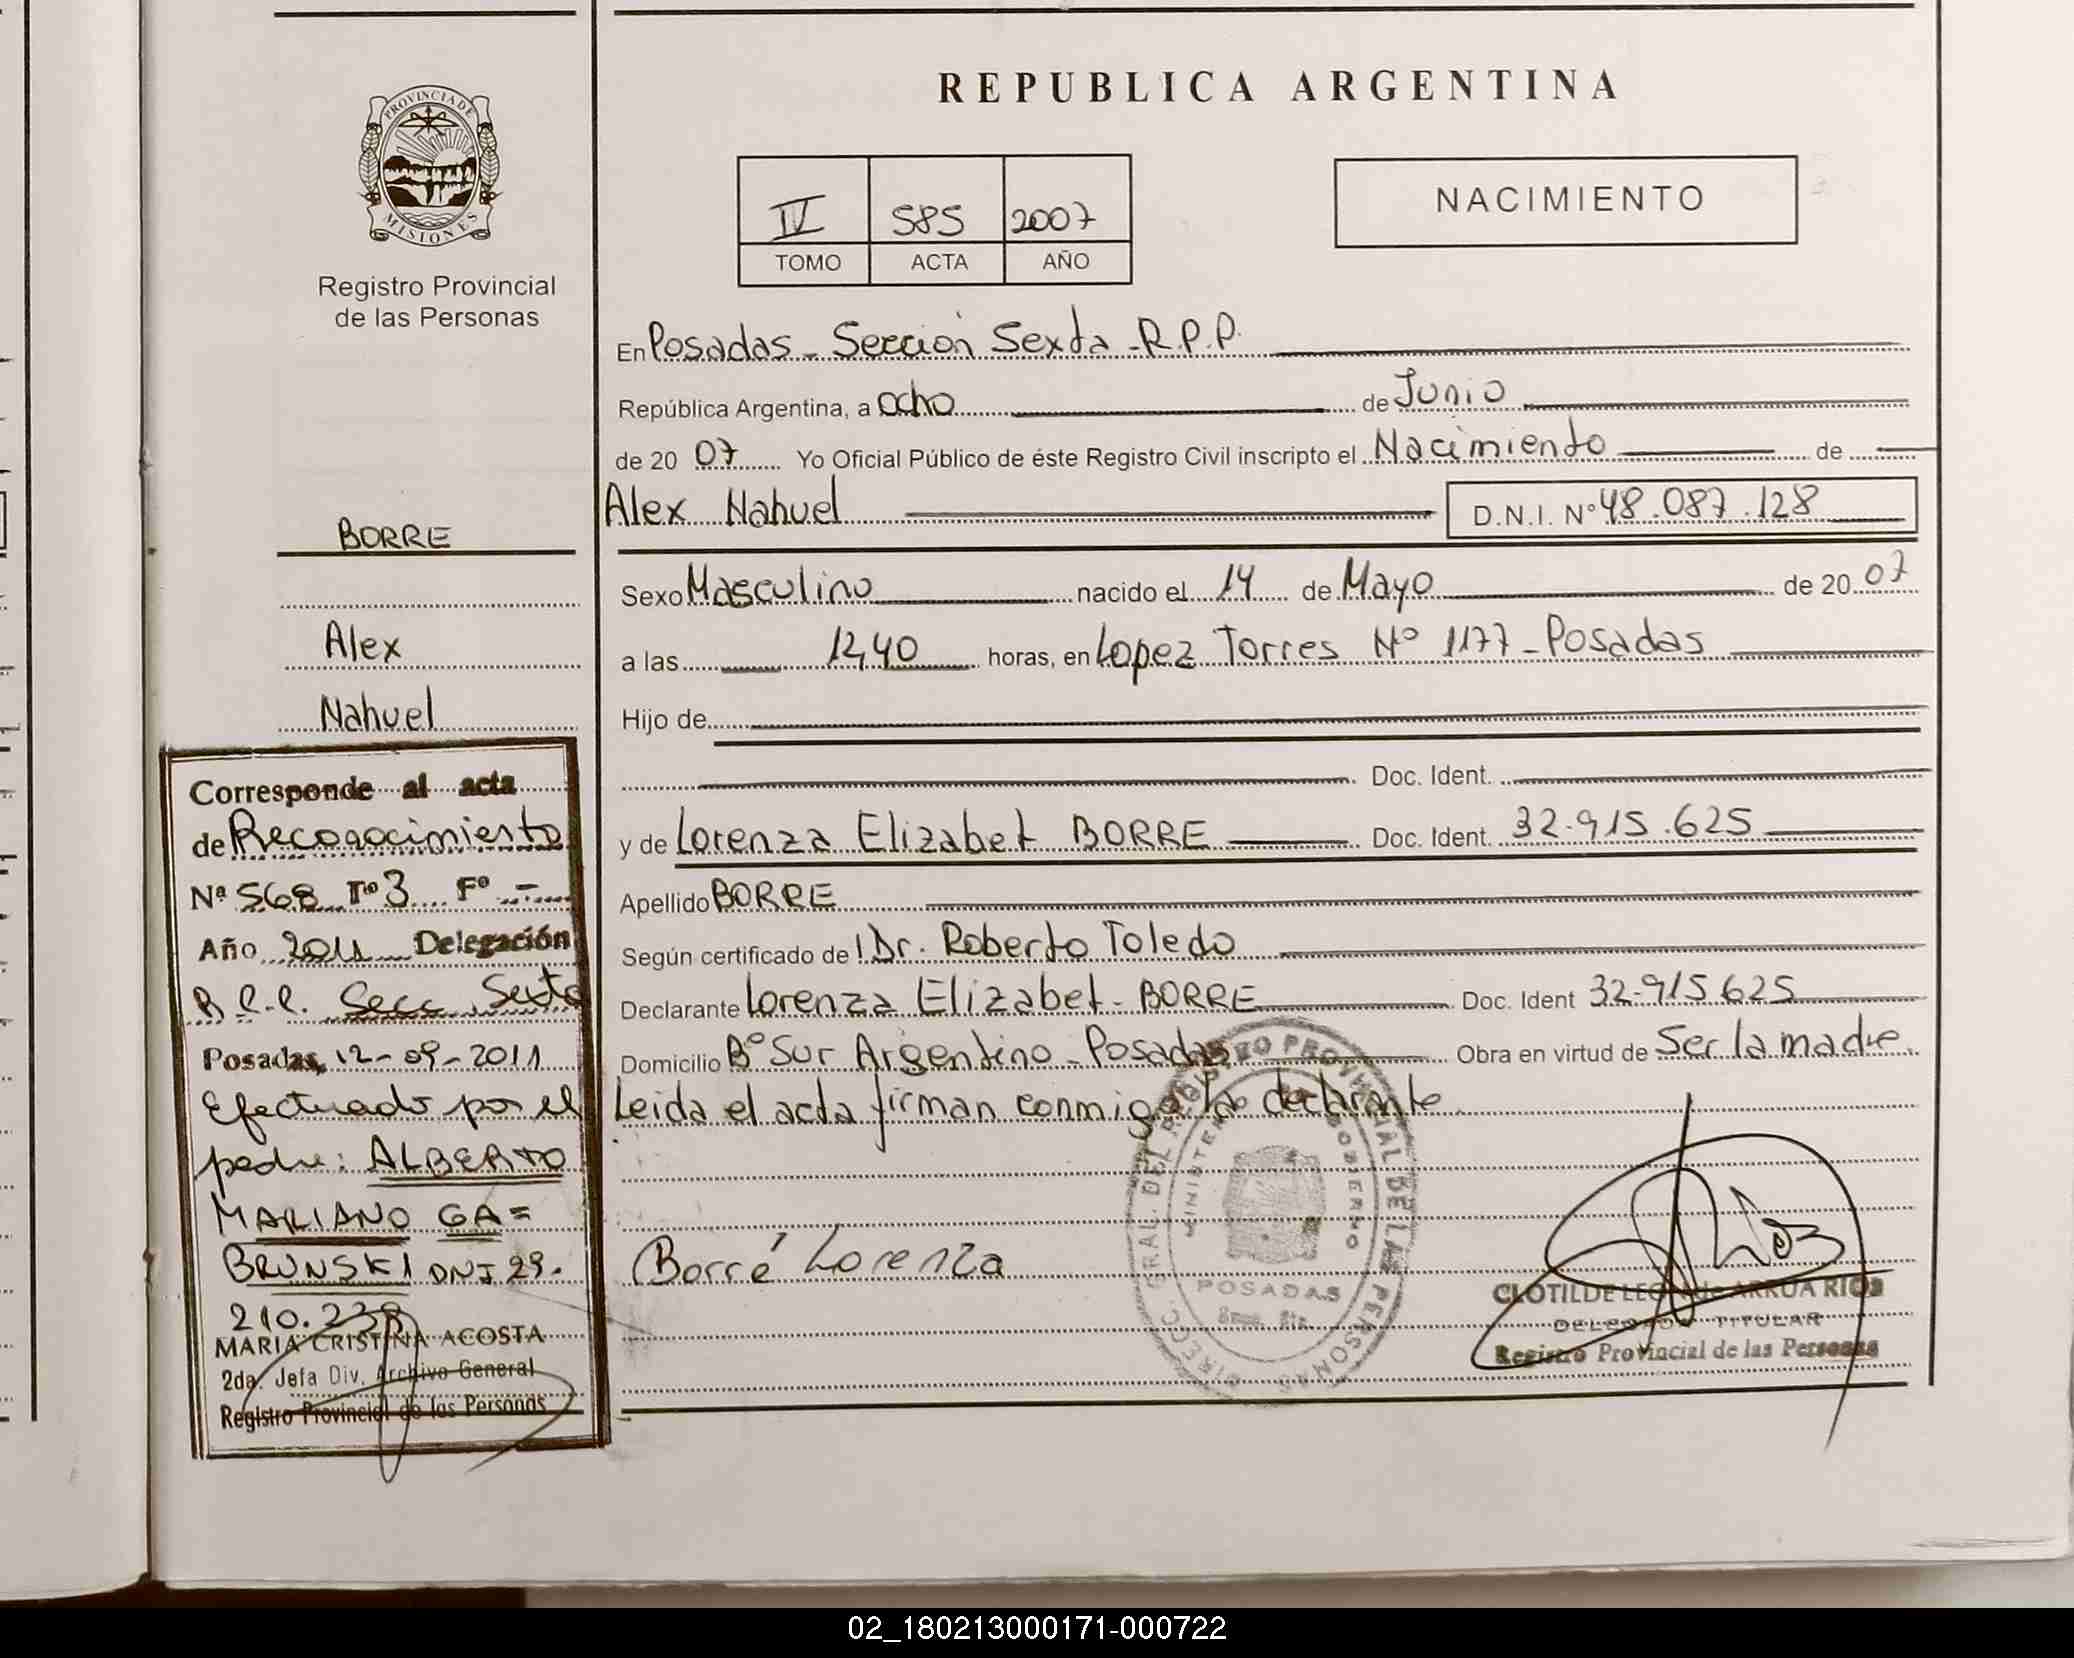 REPUBLICA ARGENTINA
PROVINCIA DE
MISIONES
Registro Provincial
de las Personas
IV 585 2007
TOMO ACTA AÑO
NACIMIENTO
En Posadas - Sección Sexta - R.P.P.
República Argentina, a ocho de Junio
de 20 07 Yo Oficial Público de éste Registro Civil inscripto el Nacimiento de
Alex Nahuel D.N.I. Nº 48.087.128
Sexo Masculino nacido el 14 de Mayo de 20 07
a las 12,40 horas, en Lopez Torres Nº 1177 - Posadas
Hijo de
Doc. Ident.
y de Lorenza Elizabet BORRE Doc. Ident. 32.915.625
Apellido BORRE
Según certificado de Dr. Roberto Toledo
Declarante Lorenza Elizabet - BORRE Doc. Ident 32.915.625
Domicilio Bº Sur Argentino - Posadas Obra en virtud de Ser la madre.
Leida el acta firman conmigo la declarante
Borré Lorenza
DIRECC. GRAL. DEL REGISTRO PROVINCIAL DE LAS PERSONAS
MINISTERIO GOBIERNO
POSADAS
CLOTILDE LEON de ARRUA RIOS
DELEGADO TITULAR
Registro Provincial de las Personas
BORRE
Alex
Nahuel
Corresponde al acta
de Reconocimiento
Nº 568 Tº 3 Fº -
Año 2011 Delegación
R.P.P. Secc. Sexta
Posadas, 12-09-2011
Efectuado por el
padre: ALBERTO
MARIANO GA=
BRUNSKI DNI 29.
210.238
MARIA CRISTINA ACOSTA
2da. Jefa Div. Archivo General
Registro Provincial de las Personas
02_180213000171-000722